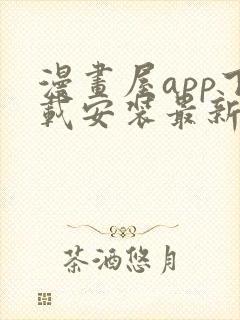 漫畫屋app下
載安裝最新
茶酒悠月